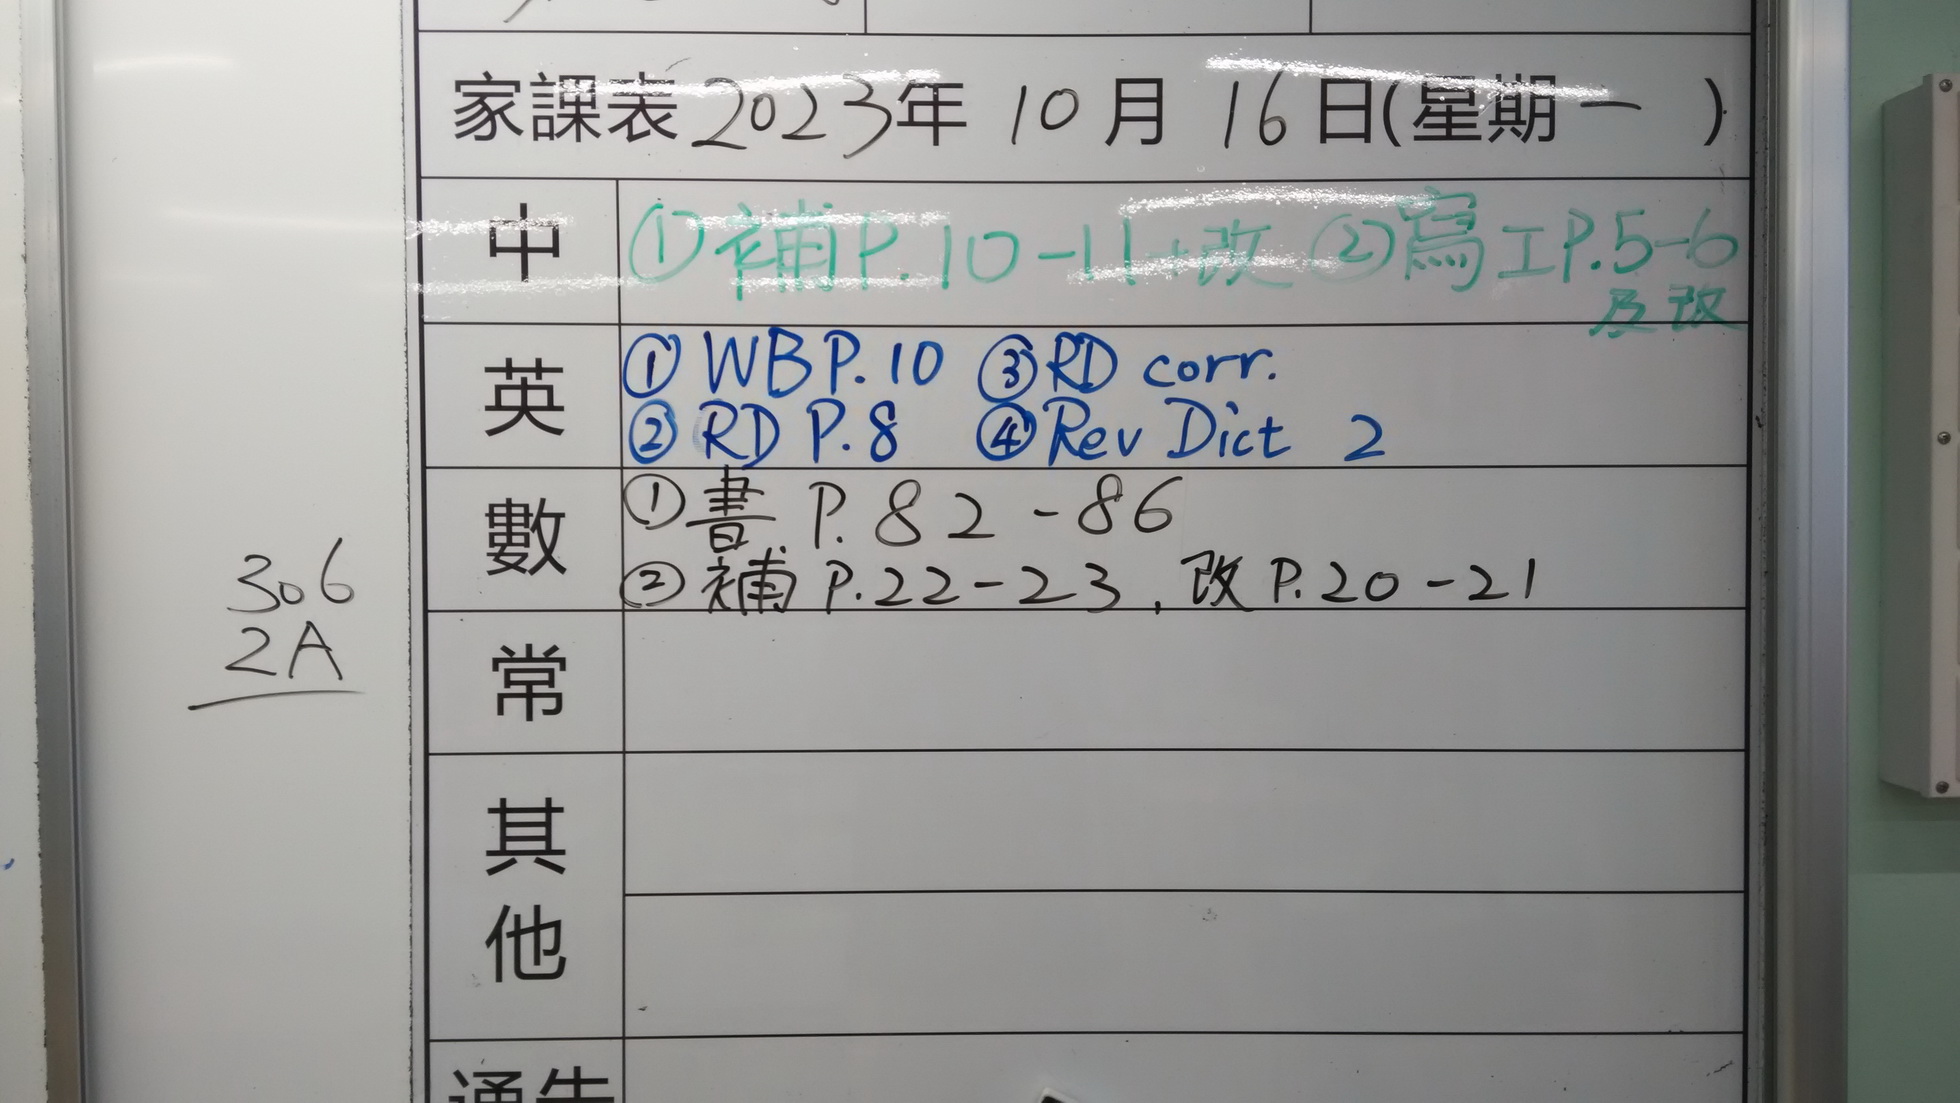 家課表 2023年 10 月 16 日(星期一 )
中 ①補P.10-11+改 ②寫工P.5-6
及改
英 ①WB P.10 ③RD corr.
②RD P.8 ④Rev Dict 2
數 ①書 P.82-86
②補 P.22-23, 改P.20-21
306
2A
常
其他
通告